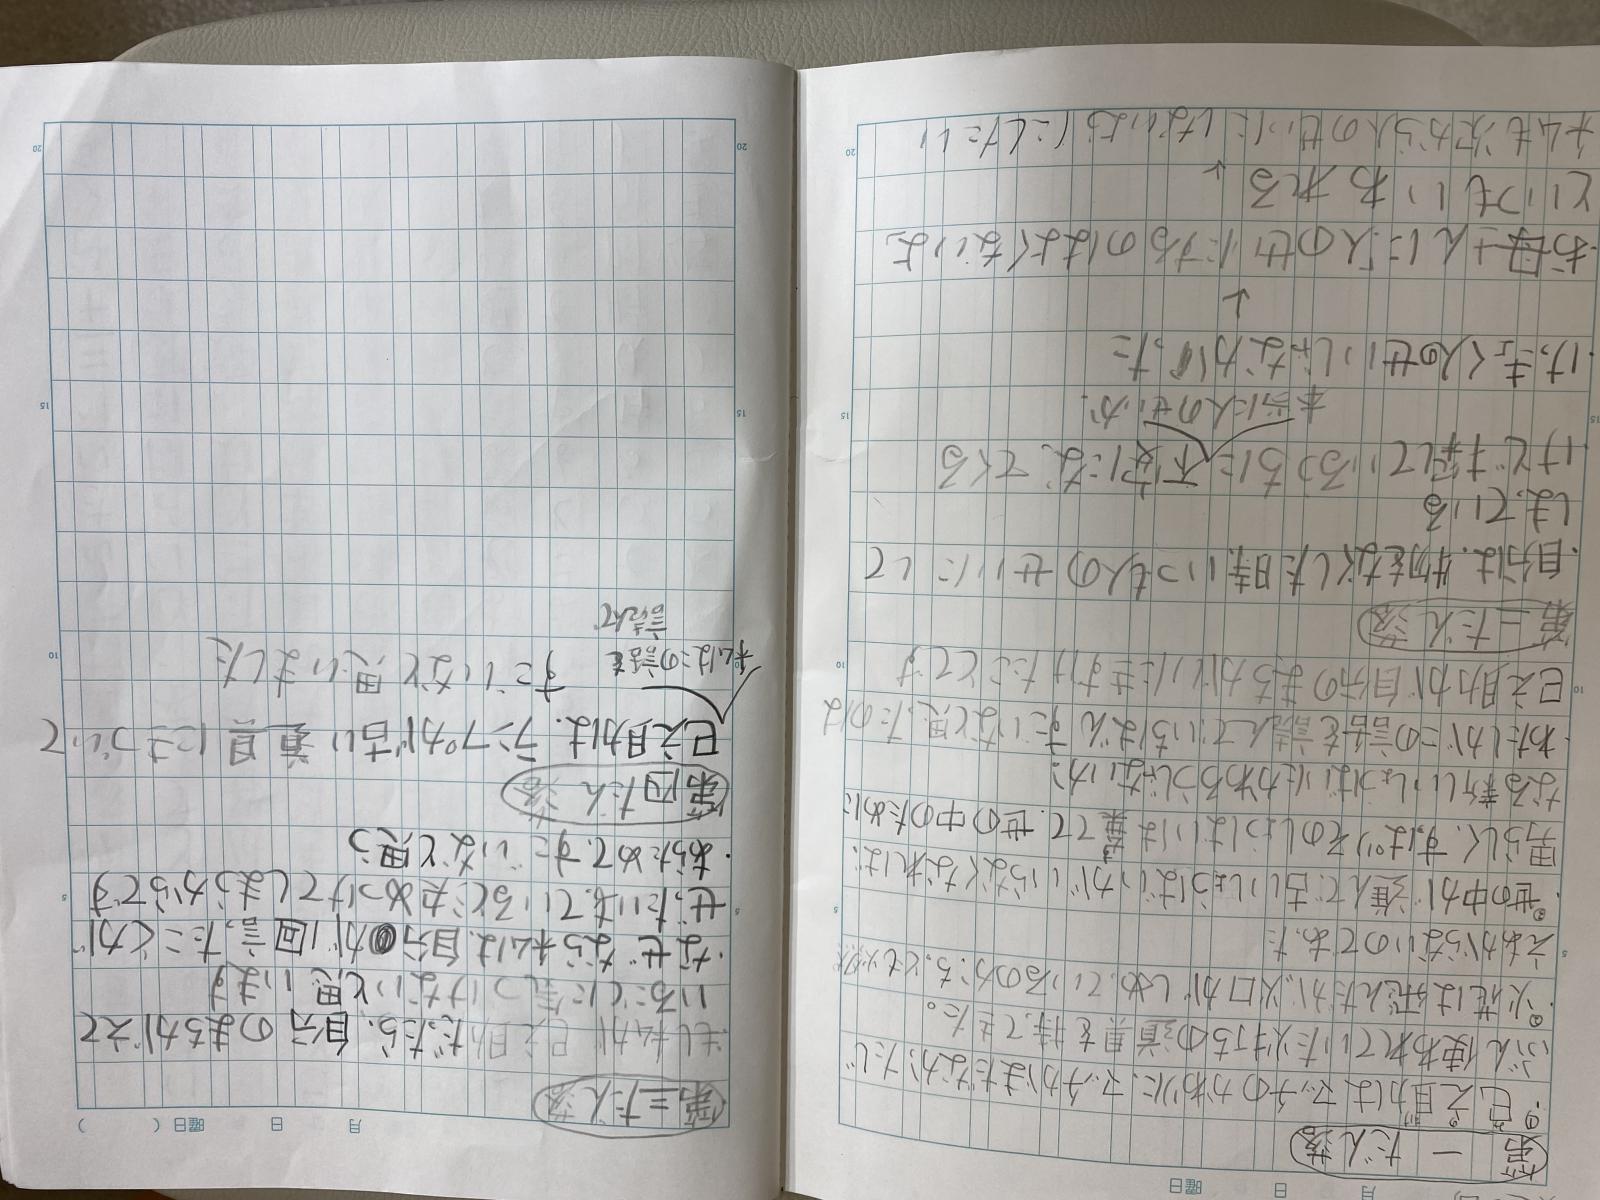 月 日 曜日
第一だん落
①・巳之助はマッチのかわりに、マッチがまだなかったじ
み の すけ
ぶん使われていた火打ちの道具を持てきた。
②・火花は飛んだが、火口がしめっているのか、ちっとも火然
えあがらないのであった
③・世の中が進んで、古いしょうばいがいらなくなれば、
男らしく、すぱりそのしょうばいは棄てて、世の中のために
なる新しいしょうばいにかわろうじゃないか?
・わたしがこの話を読んでいちばんすごいなと思ったのは
巳之助が自分のまちがいにきずけたことです
第二だん落
・自分は、物をなくした時、いつも人のせいにして
しまっている
けど探しているうちに不安になってくる
本当に人のせいか、
・けっきょく人のせいじゃなかった
↓
・お母さんに「人のせいにするのはよくないよ」
といつもいわれる
↓
私も次から人のせいにしないようにしたい
5
10
15
20
月 日 曜日( )
第三だん落
・もし私が巳之助だったら、自分のまちがえて
いることに気づけないと思います
・なぜなら私は、自分が1回言ったことが
ぜったいあっているときめつけてしまうからです
・あらためて、すごいなと思う
第四だん落
巳之助は、ランプが古い道具にきづいて
私はこの話を
読んで
すごいなと思いました
5
10
15
20